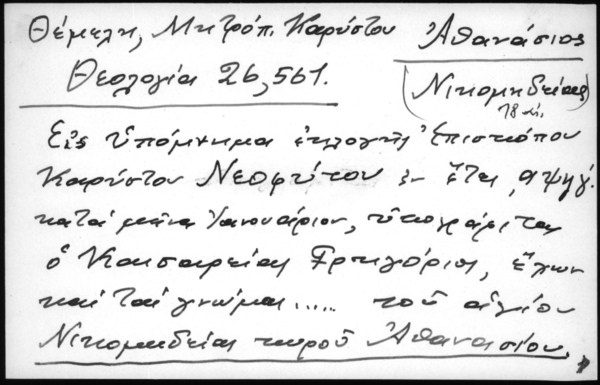 Θέμελη, Μητρόπ. Καρύστου
Ἀθανάσιος
Θεολογία 26, 561.
(Νικομηδείας)
18 αἰ.
Εἰς Ὑπόμνημα ἐκλογῆς Ἐπισκόπου
Καρύστου Νεοφύτου ἐν ἔτει ͵αψγγ΄.
κατά μῆνα Ἰανουάριον, ὑπογράφεται
ὁ Καισαρείας Γρηγόριος, ἔχων
καί τάς γνώμας..... τοῦ ἁγίου
Νικομηδείας κυροῦ Ἀθανασίου.